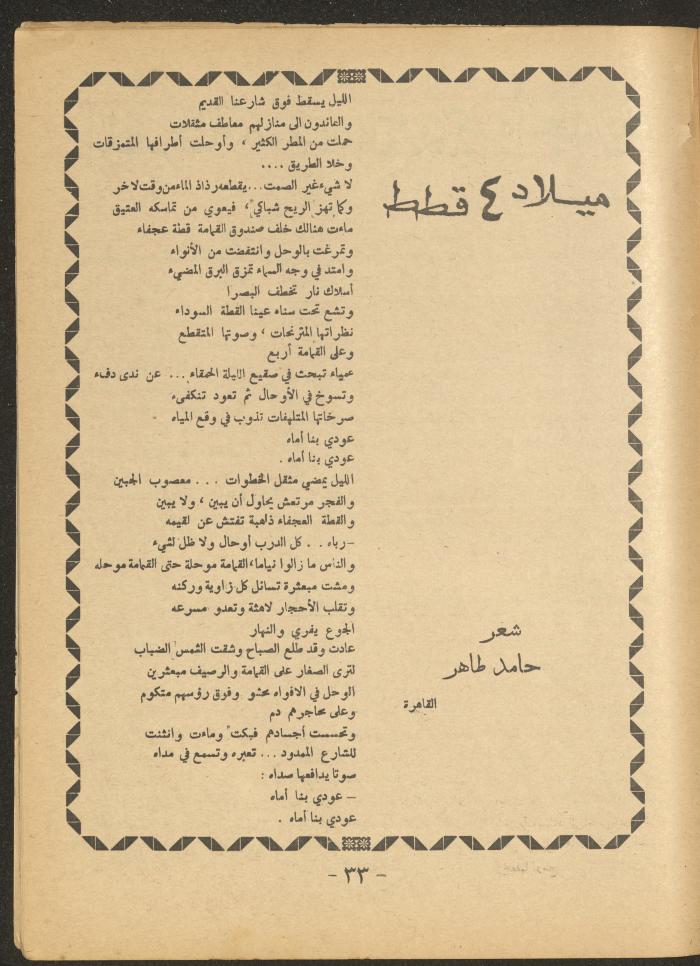 ميلاد ٤ قطط
شعر
حامد طاهر
القاهرة
الليل يسقط فوق شارعنا القديم
والعائدون الى منازلهم معاطف مثقلات
حملت من المطر الكثير ، وأوحلت أطرافها المتمزقات
وخلا الطريق ....
لا شيء غير الصمت... يقطعه رذاذ الماء من وقت لاخر
وكما تهز الريح شباكي ، فيعوي من تماسكه العتيق
ماءت هنالك خلف صندوق القمامة قطة عجفاء
وتمرغت بالوحل وانتفضت من الأنواء
وامتد في وجه السماء تمزق البرق المضيء
أسلاك نار تخطف البصرا
وتشع تحت سناه عينا القطة السوداء
نظراتها المترنحات ، وصوتها المتقطع
وعلى القمامة أربع
عمياء تبحث في صقيع الليلة الحمقاء ... عن ندى دفء
وتسوخ في الأوحال ثم تعود تنكفىء
صرخاتها المتلهفات تذوب في وقع المياه
عودي بنا أماه
عودي بنا أماه .
الليل يمضي مثقل الخطوات ... معصوب الجبين
والفجر مرتعش يحاول أن يبين ، ولا يبين
والقطة العجفاء ذاهبة تفتش عن لقيمه
–رباه . . كل الدرب أوحال ولا ظل لشيء
والناس ما زالوا نياما،القمامة موحلة حتى القمامة موحله
ومشت مبعثرة تسائل كل زاوية وركنه
وتقلب الأحجار لاهثة وتعدو مسرعه
الجوع يفري والنهار
عادت وقد طلع الصباح وشقت الشمس الضباب
لترى الصغار على القمامة والرصيف مبعثرين
الوحل في الافواه محشو وفوق رؤسهم متكوم
وعلى محاجرهم دم
وتحسست أجسادهم فبكت وماءت وانثنت
للشارع الممدود ... تعبره وتسمع في مداه
صوتا يدافعها صداه :
– عودي بنا أماه
عودي بنا أماه .
- ٣٣ -